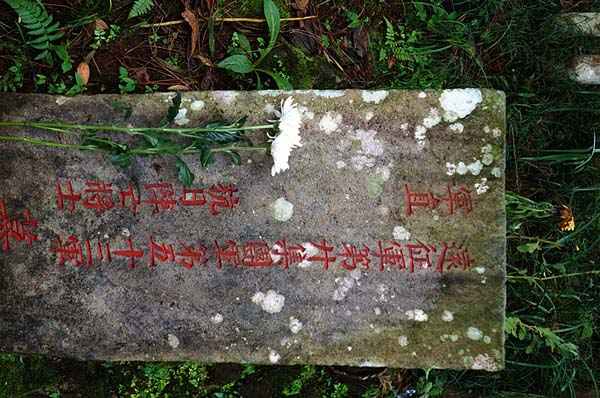 遠征軍第廿集團軍第五十三軍
軍直
抗日陣亡將士
墓